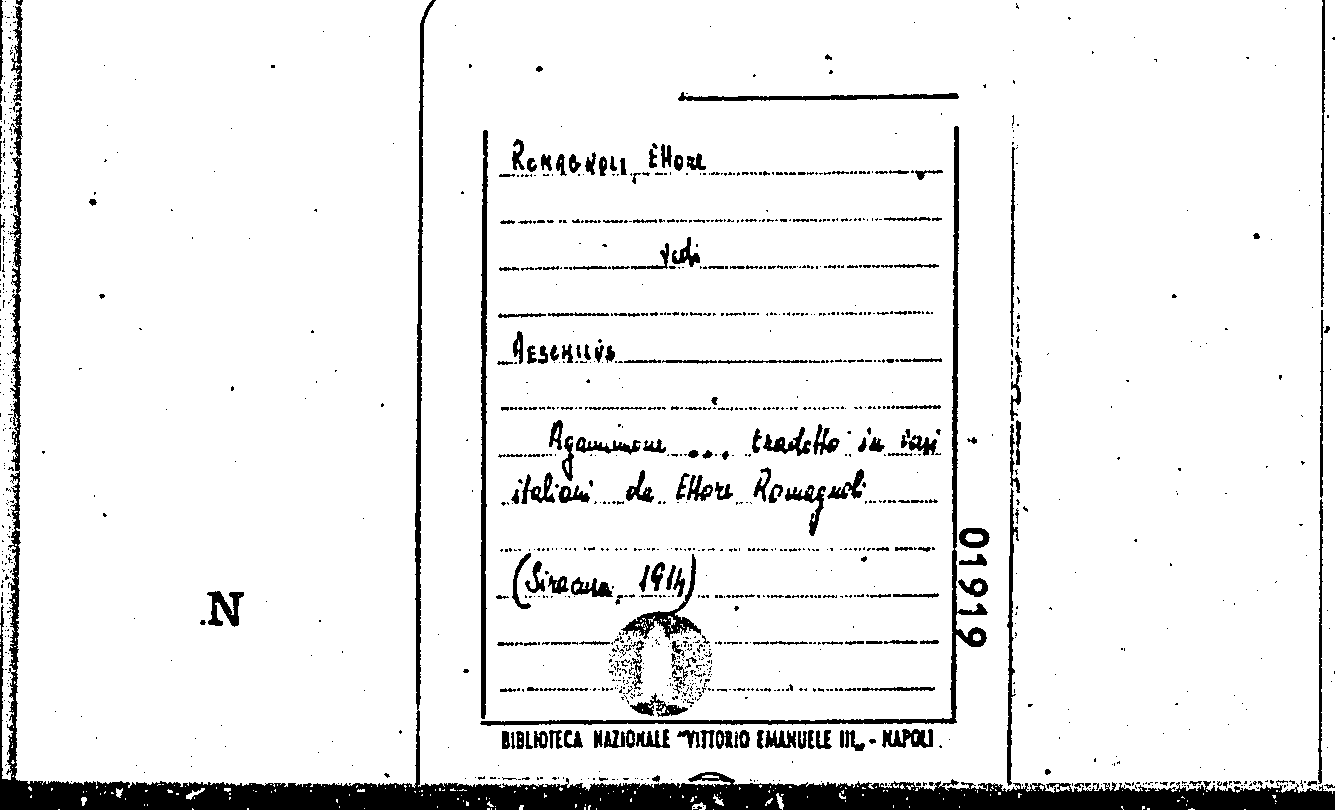 ROMAGNOLI, Ettore
vedi
AESCHYLUS
Agamennone ... tradotto in versi
italiani da Ettore Romagnoli
(Siracusa, 1914)
BIBLIOTECA NAZIONALE "VITTORIO EMANUELE III„ - NAPOLI
01919
.N